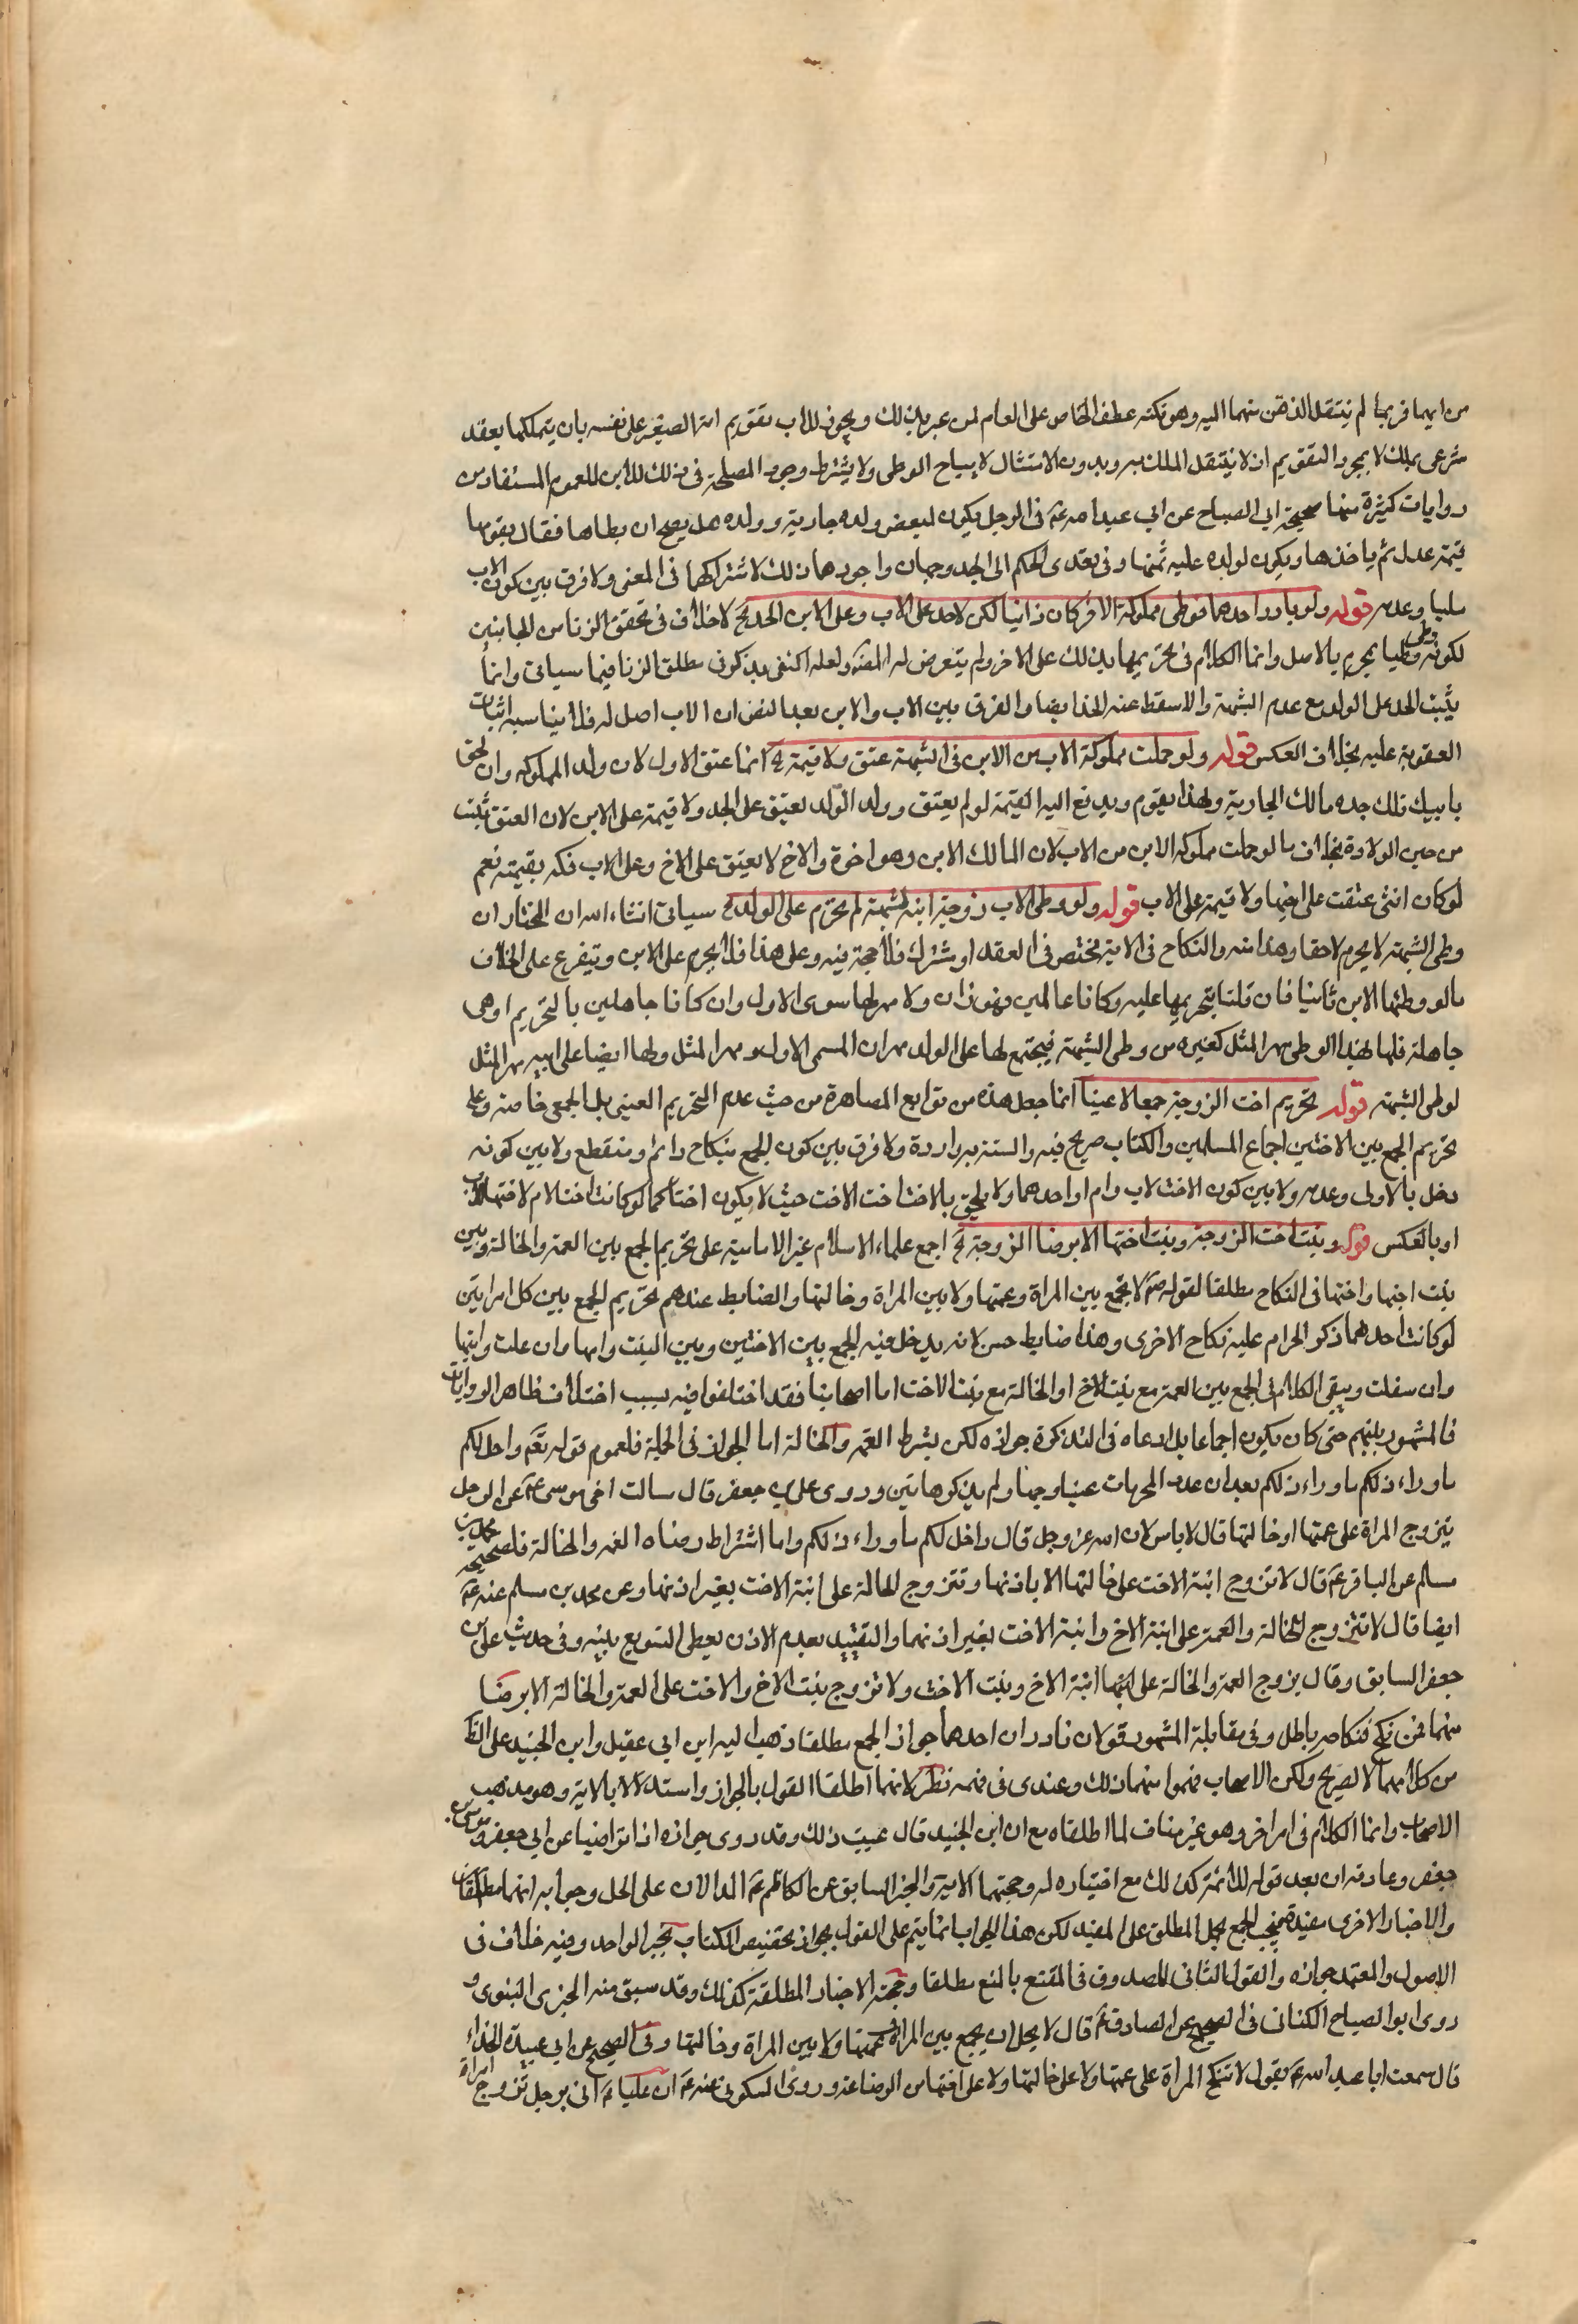 من ايهما فربما لم ينتقل الذهن منهما اليه وهو نكتة عطف الخاص على العام لمن عبر بذلك ويجوز للاب تقويم امة الصغير على نفسه بان يتملكها بعقد
شرعى يملك لا بمجرد التقويم اذ لا ينتقل الملك به وبدون الانتقال لا يباح الوطى ولا يشترط وجود المصلحة فى ذلك للابن للعموم المستفاد من
روايات كثيرة منها صحيحة ابى الصباح عن ابى عبد الله ع فى الرجل يكون لبعض ولده جارية وولده هل يصح ان يطاها فقال يقومها
قيمة عدل ثم ياخذها ويكون لولده عليه ثمنها وفى تعدى الحكم الى الجد وجهان واجودهما ذلك لاشتراكهما فى المعنى ولا فرق بين كون الاب
مليا وعدمه قوله ولو بادر احدهما فوطى مملوكة الاخر كان زانيا لكن لا حد على الاب وعلى الابن الحد الخ لا خلاف فى تحقق الزنا من الجانبين
لكونه وطيا يحرم بالاصل وانما الكلام فى تحريمها بذلك على الاخر ولم يتعرض له المصنف ولعله اكتفى بذكره فى مطلق الزنا فيما سياتى وانما
يثبت الحد على الولد مع عدم الشبهة والا سقط عنه الحد ايضا والفرق بين الاب والابن بعد النص ان الاب اصل له فلا يناسبه اثبات
العقوبة عليه بخلاف العكس قوله ولو حملت مملوكة الاب من الابن فى الشبهة عتق ولا قيمة الخ انما عتق الاول لان ولد المملوكه وان لحق
بابيه لك جده مالك الجارية ولهذا يقوم ويدفع اليه القيمة لو لم يعتق وولد الولد يعتق على الجد ولا قيمة على الابن لان العتق يثبت
من حين الولادة بخلاف ما لو حملت مملوكة الابن من الاب لان المالك الابن وهو اخوه والاخ لا يعتق على الاخ وعلى الاب فكه بقيمته نعم
لو كان انثى عتقت على اخيها ولا قيمة على الاب قوله ولو وطى الاب زوجة ابنه لشبهة لم تحرم على الولد الخ سياتى انشاء الله ان المختار ان
وطى الشبهة لا يحرم لاحقا وهذا منه والنكاح فى الاية مختص فى العقد او مشترك فلا حجة فيه وعلى هذا فلا يحرم على الابن ويتفرع على الخلاف
مالو وطئها الابن ثانيا فان قلنا بتحريمها عليه وكانا عالمين فهو زان ولا مهر لها سوى الاول وان كانا جاهلين بالتحريم او هى
جاهلة فلها لهذا الوطى مهر المثل كغيره من وطى الشبهة فيجتمع لها على الولد مهران المسمى الاول ومهر المثل ولها ايضا على ابيه مهر المثل
لوطى الشبهة قوله تحريم اخت الزوجة جمعا لا عينا انما جعل هذه من توابع المصاهرة من حيث عدم التحريم العينى بل الجمعى خاصة وعلى
تحريم الجمع بين الاختين اجماع المسلمين والكتاب صريح فيه والسنة به واردة ولا فرق بين كون الجمع بنكاح دائم ومنقطع ولا بين كونه
دخل بالاولى وعدمه ولا بين كون الاخت لاب وام او احدهما ولا يلحق بالاخت اخت الاخت حيث لا يكون اختا كما لو كانت اختا لام لاختها لاب
او بالعكس قوله وبنت اخت الزوجة وبنت اخيها الا برضا الزوجة الخ اجمع علماء الاسلام غير الامامية على تحريم الجمع بين العمة والخالة وبين
بنت اخيها واختها فى النكاح مطلقا لقوله ص لا يجمع بين المراة وعمتها ولا بين المراة وخالتها والضابط عندهم تحريم الجمع بين كل امراتين
لو كانت احدهما ذكر الحرام عليه نكاح الاخرى وهذا ضابط حسن لانه يدخل فيه الجمع بين الاختين وبين البنت وامها وان علت وابنتها
وان سفلت ويبقى الكلام فى الجمع بين العمة مع بنت الاخ او الخالة مع بنت الاخت اما اصحابنا فقد اختلفوا فيه بسبب اختلاف ظاهر الروايات
فالمشهور بينهم حتى كان يكون اجماعا بل ادعاه فى التذكرة جوازه لكن بشرط رضا العمه والخالة اما الجواز فى الجملة فلعموم قوله تعم واحل لكم
ما وراء ذلكم ما وراء ذلكم بعد ان عدد المحرمات عينا وجمعا ولم يذكر هاتين وروى على بن جعفر قال سالت اخى موسى ع عن الرجل
يتزوج المراة على عمتها او خالتها قال لا باس لان الله عز وجل قال واحل لكم ما وراء ذلكم واما اشتراط رضاء العمه والخالة فلصحيحة محمد بن
مسلم عن الباقر ع قال لا تزوج ابنة الاخت على خالتها الا باذنها وتتزوج الخالة على ابنة الاخت بغير اذنها وعن محمد بن مسلم عنه ع
ايضا قال لا تتزوج الخالة والعمة على ابنة الاخ وابنة الاخت بغير اذنهما والتقييد بعدم الاذن يعطى التسويغ بدونه وفى حديث على بن
جعفر السابق وقال يزوج العمة والخالة على ابنة الاخ وبنت الاخت ولا تزوج بنت الاخ والاخت على العمة والخالة الا برضا
منهما فمن نكح فنكاحه باطل وفى مقابلة المشهور قولان نادران احدهما جواز الجمع مطلقا ذهب اليه ابن ابى عقيل وابن الجنيد على الظاهر
من كلامهما لا الصريح ولكن الاصحاب فهموا منهما ذلك وعندى فى فهمه نظر لانهما اطلقا القول بالجواز واستدلالا بالاية وهو مذهب
الاصحاب وانما الكلام فى امر اخر وهو غير مناف لما اطلقاه مع ان ابن الجنيد قال عقيب ذلك وقد روى جوازه اذا تراضيا عن ابى جعفر وموسى بن
جعفر وعادته ان بعد قوله للائمة كذلك مع اختياره له وحجتهما الاية والخبر السابق عن الكاظم ع الدالان على الحل وجوابه انهما مطلقان
والاخبار الاخرى مفيدة فيجب الجمع بحمل المطلق على المقيد لكن هذا الجواب انما يتم على القول بجواز تخصيص الكتاب بخبر الواحد وفيه خلاف فى
الاصول والمعتمد جوازه والقول الثانى للصدوق فى المقنع بالمنع مطلقا وحجته الاخبار المطلقة كذلك وقد سبق منه الخبر النبوى و
روى ابو الصباح الكنانى فى الصحيح عن الصادق ع قال لا يحل ان يجمع بين المراة وعمتها ولا بين المراة وخالتها وفى الصحيح عن ابى عبيدة الحذاء
قال سمعت ابا عبد الله ع يقول لا تنكح المراة على عمتها ولا على خالتها ولا على اختها من الرضاعة وروى السكونى عنه ع ان عليا ع اتى برجل تزوج امراة